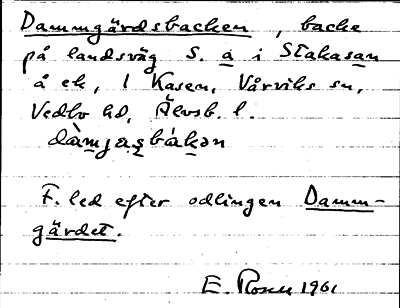 Dammgärdsbacken, backe
på landsväg S. a i Stakasan
å ek, 1 Kasen, Vårviks sn,
Vedbo hd, Älvsb. l.
dàmjasbákən
F. led efter odlingen Damm-
gärdet.
E. Rosen 1961